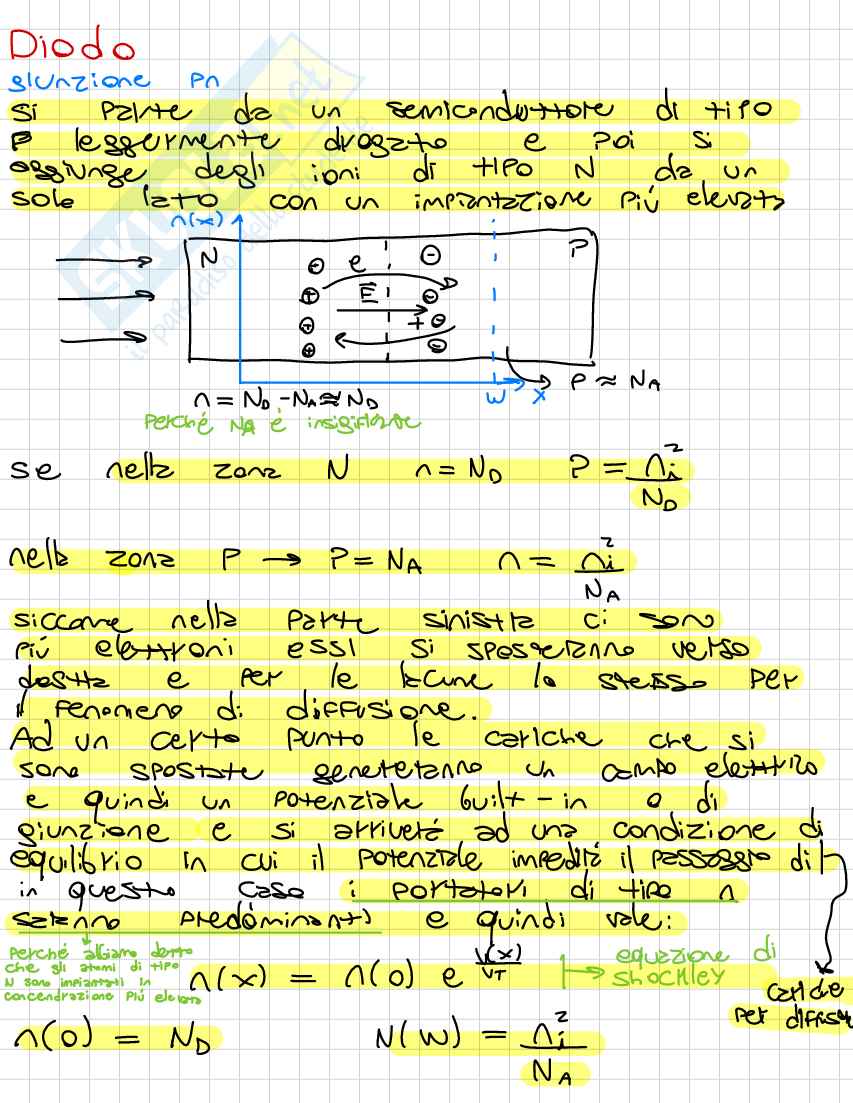 Diodo
giunzione pn
Si parte da un semiconduttore di tipo
P leggermente drogato e poi si
aggiunge degli ioni di tipo N da un
solo lato con un impiantazione più elevata
n(x)
N e P
E
+
n = N_D - N_A ≈ N_D
w x
P ≈ N_A
Perché NA è
se nella zona N n = N_D P = n_i^2 / N_D
nella zona P → P = N_A n = n_i^2 / N_A
siccome nella parte sinistra ci sono
più elettroni essi si sposteranno verso
destra e per le lacune lo stesso per
il fenomeno di diffusione.
Ad un certo punto le cariche che si
sono spostate genereranno un campo elettrico
e quindi un potenziale built-in o di
giunzione e si arriverà ad una condizione di
equilibrio in cui il potenziale impedirà il passaggio di
cariche
per diffusione
in questo caso i portatori di tipo n
saranno predominanti e quindi vale:
Perché abbiamo detto
che gli atomi di tipo
N sono impiantati in
concendrazione più elevata
n(x) = n(0) e^(V(x)/V_T)
equazione di
Shockley
n(0) = N_D N(W) = n_i^2 / N_A
SKUOLA.net
il paradiso dello studente